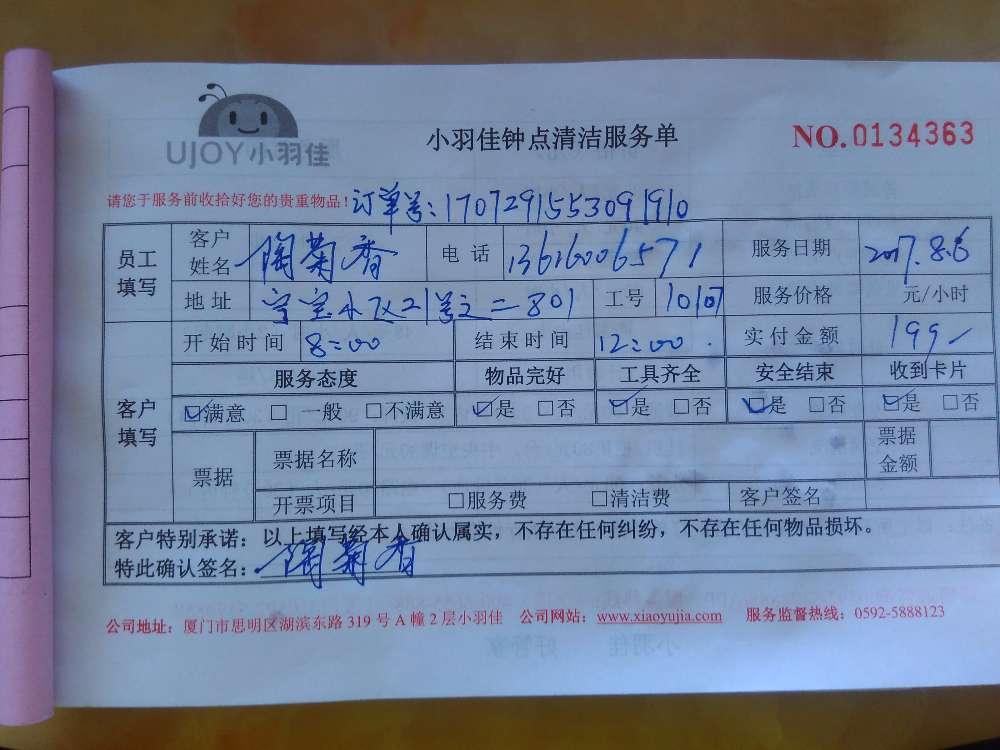 UJOY小羽佳
小羽佳钟点清洁服务单
NO.0134363
请您于服务前收拾好您的贵重物品!
订单号:1707291553091910
员工填写
客户姓名 陶菊香 电话 13616006571 服务日期 2017.8.6
地址 宁宝小区21号之二-801 工号 10107 服务价格 元/小时
客户填写
开始时间 8:00 结束时间 12:00 实付金额 199
服务态度 物品完好 工具齐全 安全结束 收到卡片
☑满意 □一般 □不满意 ☑是 □否 ☑是 □否 ☑是 □否 ☑是 □否
票据 票据名称 票据金额
开票项目 □服务费 □清洁费 客户签名
客户特别承诺:以上填写经本人确认属实,不存在任何纠纷,不存在任何物品损坏。
特此确认签名:陶菊香
公司地址:厦门市思明区湖滨东路 319 号 A 幢 2 层小羽佳 公司网站:www.xiaoyujia.com 服务监督热线:0592-5888123